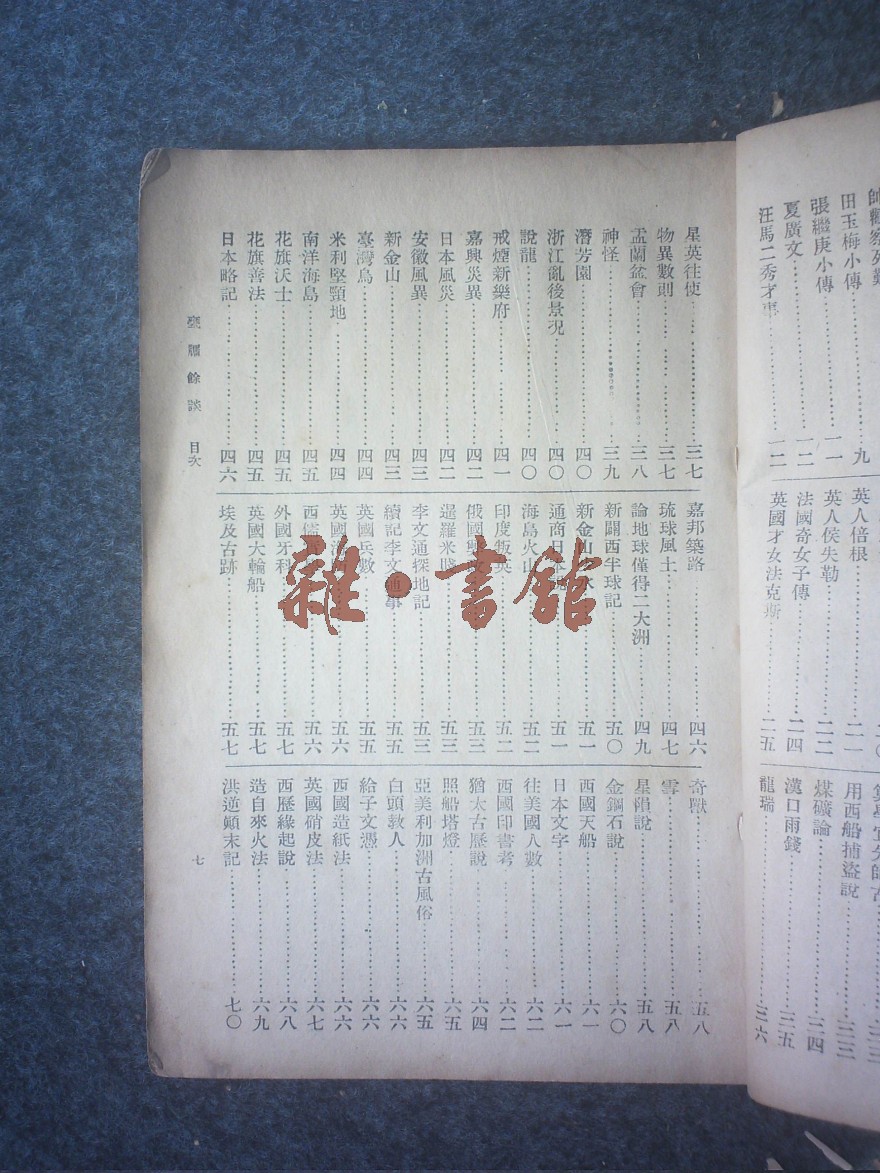 田玉梅小傳 九
張繼庚小傳 一一
夏廣文 一二
汪馬二秀才事 一二
英人倍根 二一
英人侯失勒 二二
法國奇女子傳 二四
英國才女法克斯 二五
用西船捕盜說 三三
煤礦論 三四
漢口雨錢 三五
龍瑞 三六
星英往使 三七
物異數則 三七
盂蘭盆會 三八
神怪 三九
潛芳園 四〇
浙江亂後景況 四〇
說龍 四〇
戒煙新樂府 四一
嘉興災異 四二
日本風災 四二
安徽風異 四三
新金山 四三
臺灣鳥 四四
米利堅頸地 四四
南洋海島 四五
花旗沃士 四五
花旗善法 四五
日本略記 四六
嘉邦築路 四六
琉球風土 四七
論地球僅得二大洲 四九
新闢西半球記 五〇
新金山 五一
通商日本 五一
海島火山 五二
印度叛英 五二
俄國 五三
暹羅米賤 五三
李文通探地記 五三
續記李文通事 五五
英國兵數 五五
英國 五六
西 五六
外國牙科 五七
英國大輪船 五七
埃及古跡 五七
奇獸 五八
雪 五八
星隕說 五八
金鋼石說 六〇
西國天船 六一
日本文字 六一
往美國人數 六二
西國印書考 六二
猶太古歷說 六四
照船塔燈 六五
亞美利加洲古風俗 六五
白頭教人 六六
給子文憑 六六
西國造紙法 六六
英國硝皮法 六七
西歷緣起說 六八
造自來火法 六九
洪逆顛末記 七〇
甕牖餘談 目次
七
雜·書館